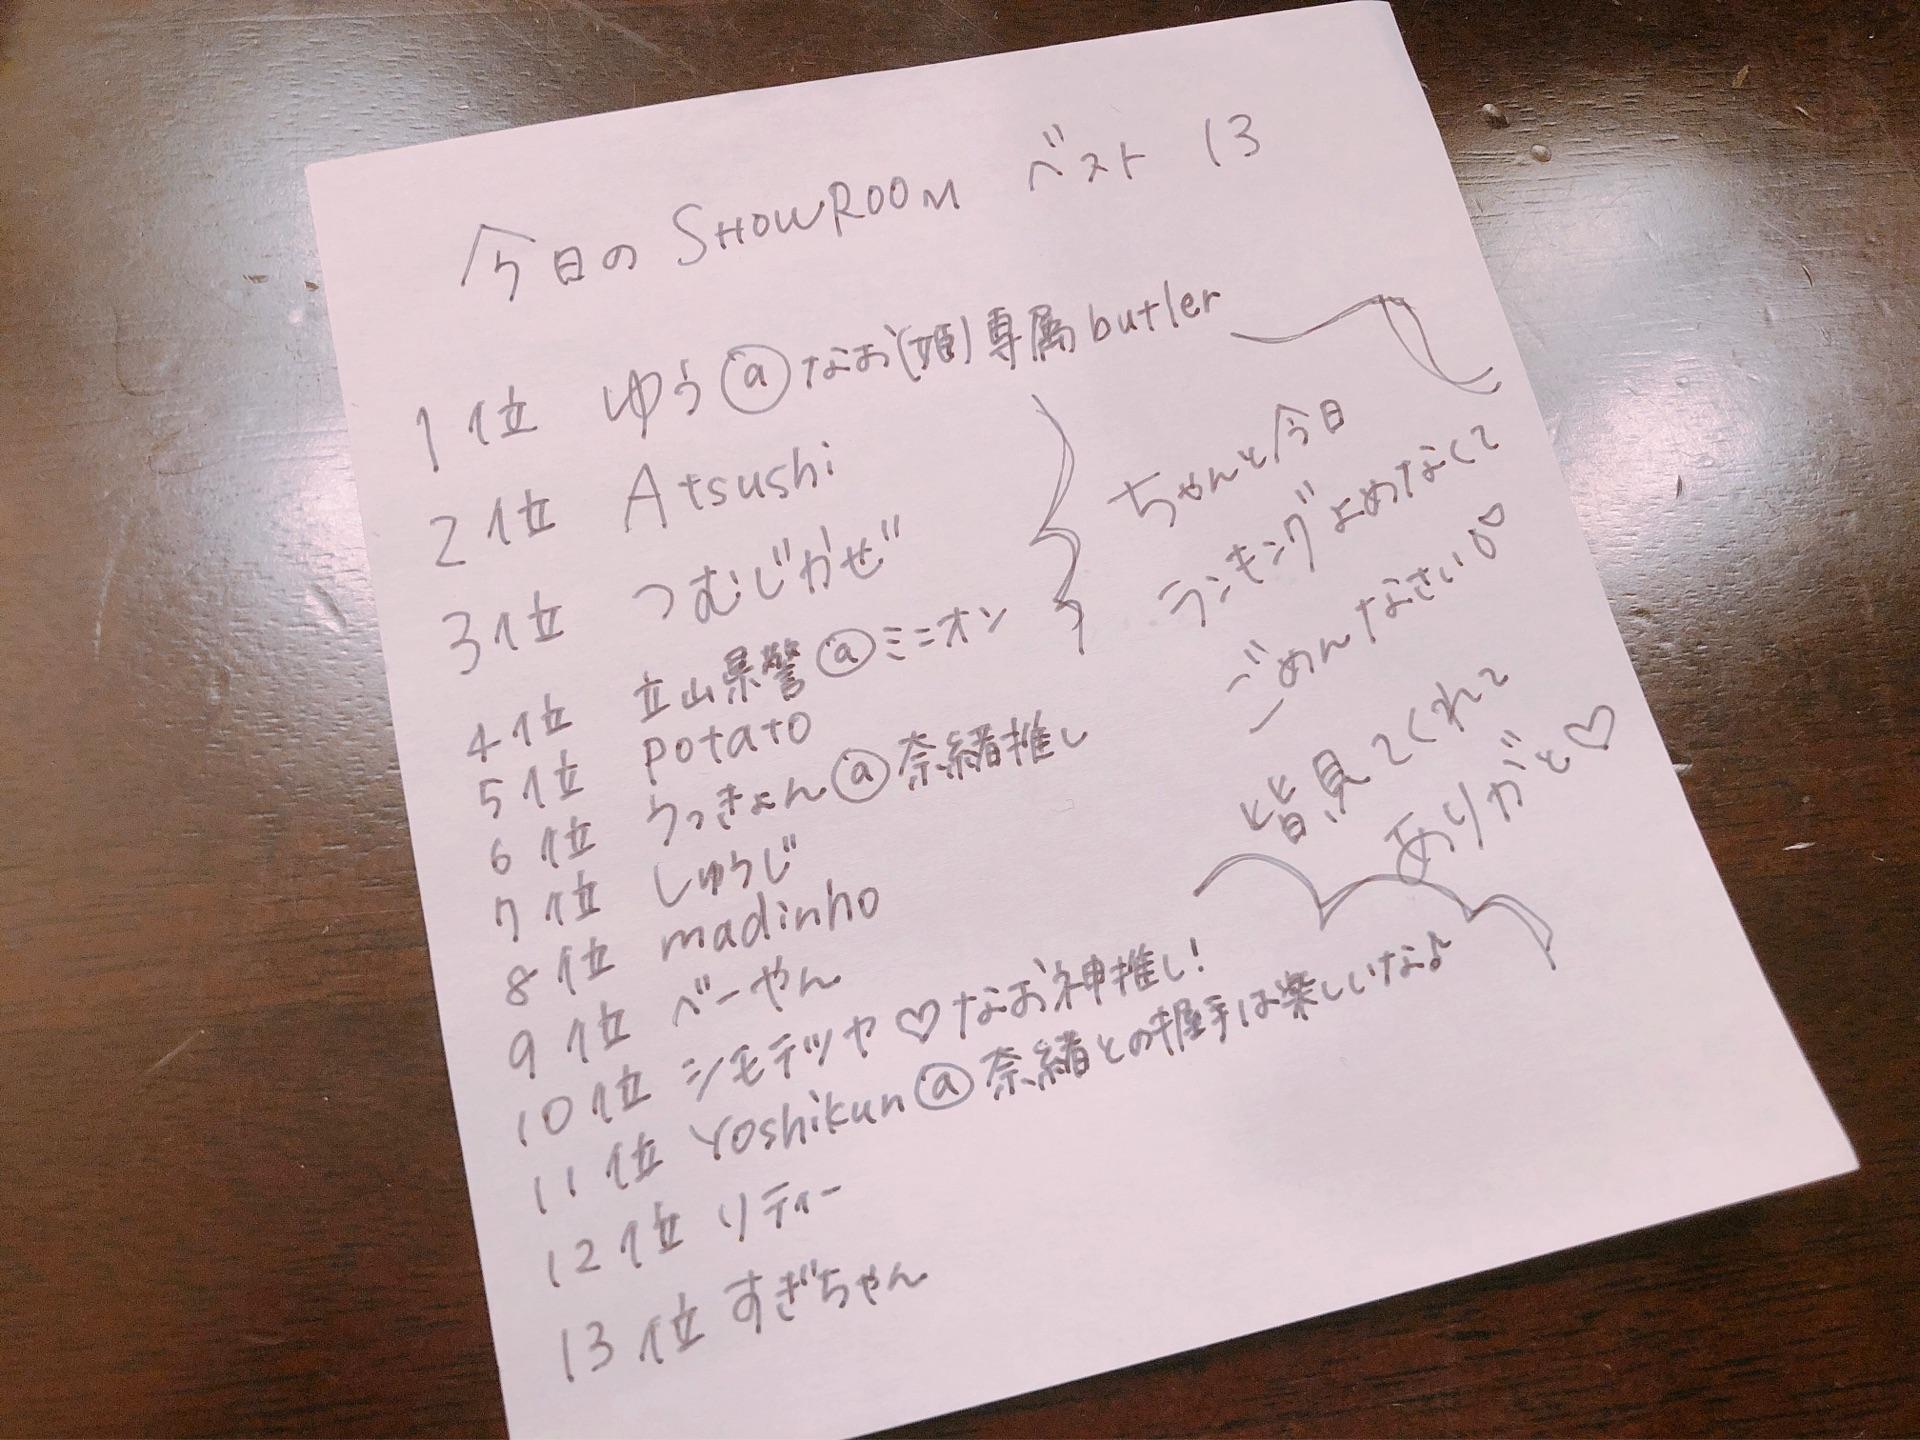 今日のSHOWROOM ベスト 13
1位 ゆう@なお(姫)専属butler
2位 Atsushi
3位 つむじかぜ
4位 立山県警@ミニオン
5位 potato
6位 うっきょん@奈緒推し
7位 しゅうじ
8位 madinho
9位 べーやん
10位 シモテツヤ♡なお神推し!
11位 Yoshikun@奈緒との握手は楽しいな♪
12位 リティー
13位 すぎちゃん
ちゃんと今日
ランキングよめなくて
ごめんなさい♡
皆見てくれて
ありがと♡